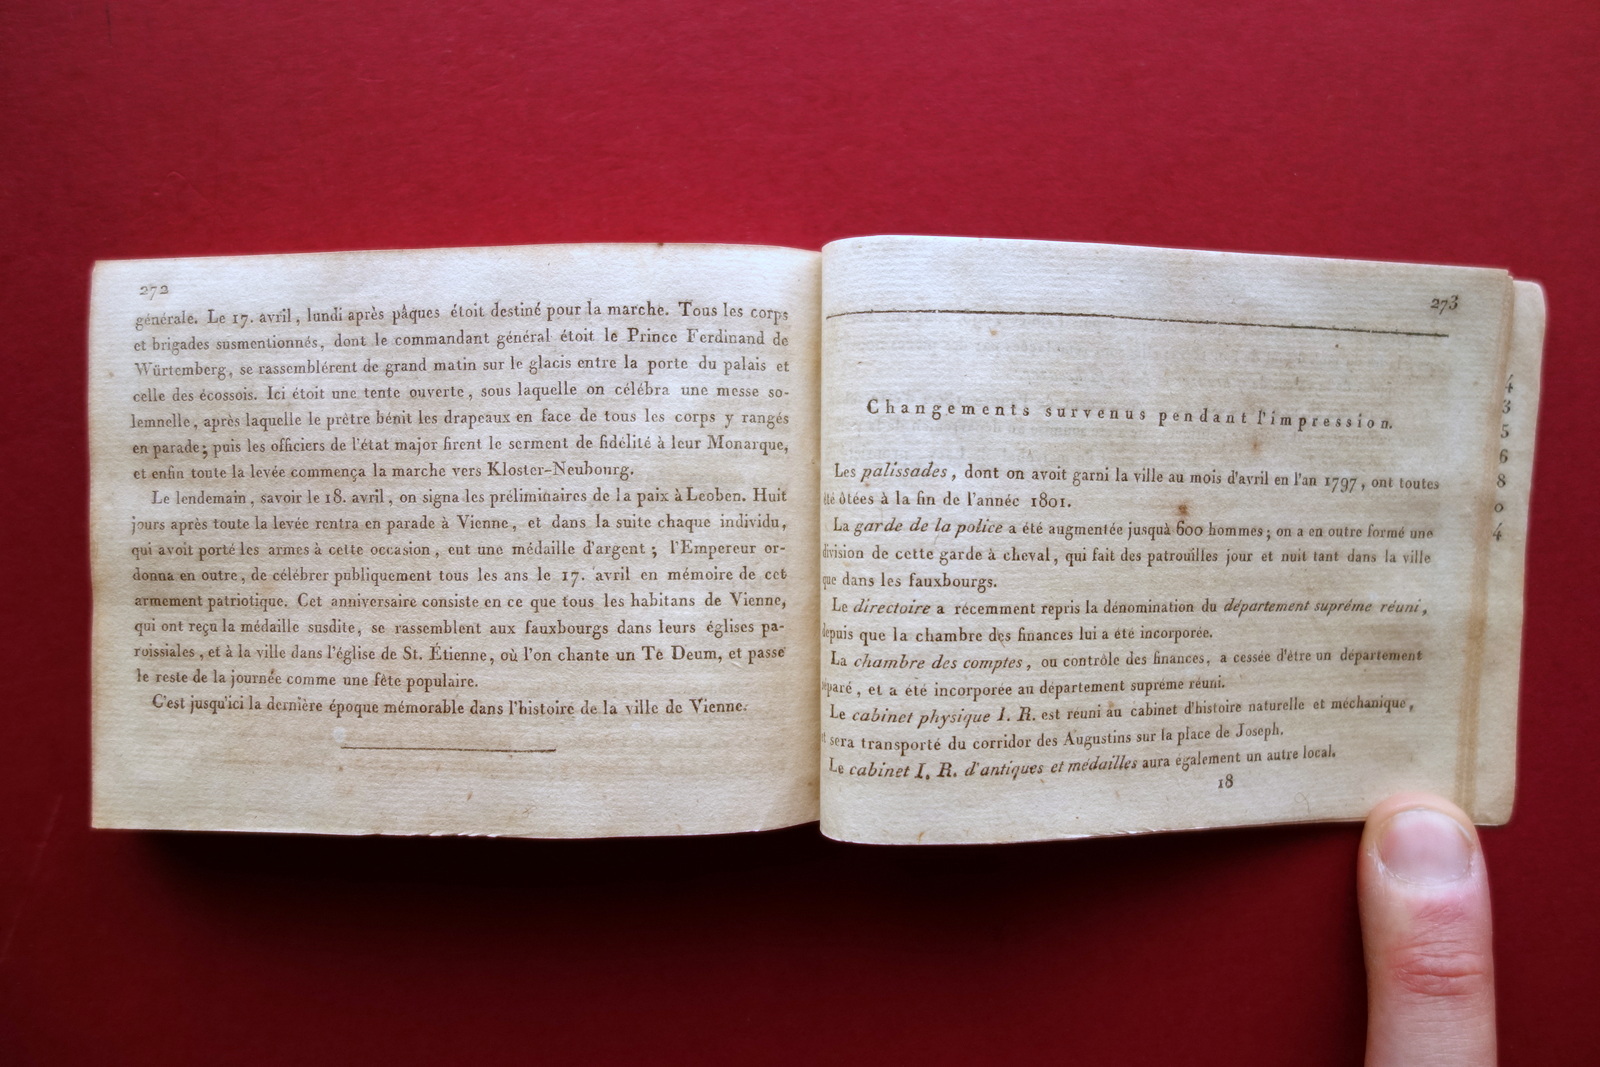 272
générale. Le 17. avril, lundi après pâques étoit destiné pour la marche. Tous les corps
et brigades susmentionnés, dont le commandant général étoit le Prince Ferdinand de
Würtemberg, se rassemblérent de grand matin sur le glacis entre la porte du palais et
celle des écossois. Ici étoit une tente ouverte, sous laquelle on célébra une messe so-
lemnelle, après laquelle le prètre bénit les drapeaux en face de tous les corps y rangés
en parade; puis les officiers de l'état major firent le serment de fidélité à leur Monarque,
et enfin toute la levée commença la marche vers Kloster-Neubourg.
Le lendemain, savoir le 18. avril, on signa les préliminaires de la paix à Leoben. Huit
jours après toute la levée rentra en parade à Vienne, et dans la suite chaque individu,
qui avoit porté les armes à cette occasion, eut une médaille d'argent; l'Empereur or-
donna en outre, de célébrer publiquement tous les ans le 17. avril en mémoire de cet
armement patriotique. Cet anniversaire consiste en ce que tous les habitans de Vienne,
qui ont reçu la médaille susdite, se rassemblent aux fauxbourgs dans leurs églises pa-
roissiales, et à la ville dans l'église de St. Étienne, où l'on chante un Te Deum, et passe
le reste de la journée comme une fête populaire.
C'est jusqu'ici la dernière époque mémorable dans l'histoire de la ville de Vienne.
273
Changements survenus pendant l'impression.
Les palissades, dont on avoit garni la ville au mois d'avril en l'an 1797, ont toutes
été ôtées à la fin de l'année 1801.
La garde de la police a été augmentée jusquà 600 hommes; on a en outre formé une
division de cette garde à cheval, qui fait des patrouilles jour et nuit tant dans la ville
que dans les fauxbourgs.
Le directoire a récemment repris la dénomination du département supréme réuni,
depuis que la chambre des finances lui a été incorporée.
La chambre des comptes, ou contrôle des finances, a cessée d'être un département
séparé, et a été incorporée au département supréme réuni.
Le cabinet physique I. R. est réuni au cabinet d'histoire naturelle et méchanique,
et sera transporté du corridor des Augustins sur la place de Joseph.
Le cabinet I. R. d'antiques et médailles aura également un autre local.
18
4
3
5
6
8
0
4